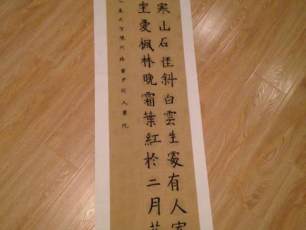 寒山石徑斜白雲生處有人家
坐愛楓林晚霜葉紅於二月花